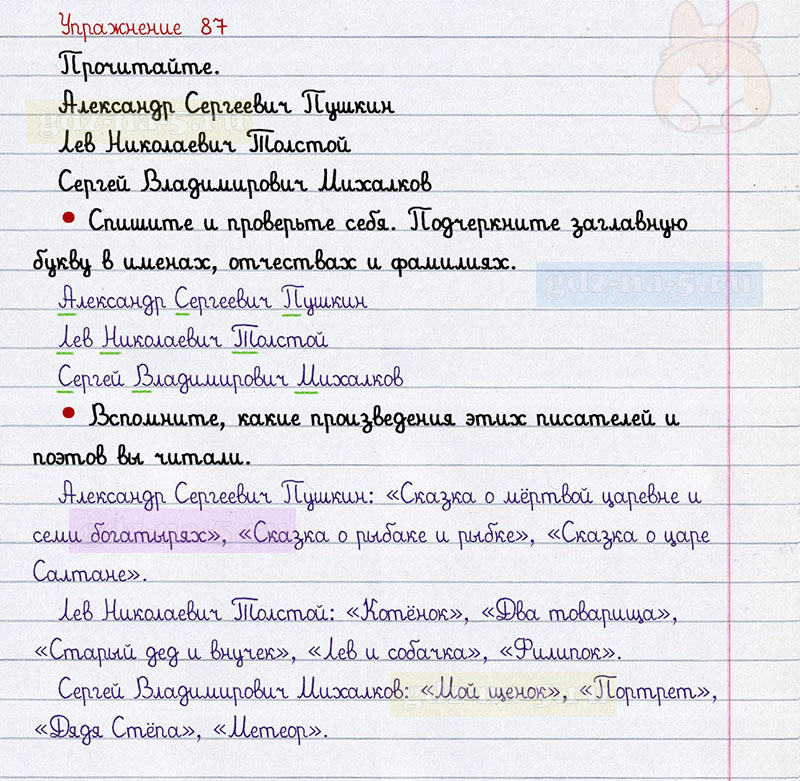 Упражнение 87
Прочитайте.
Александр Сергеевич Пушкин
Лев Николаевич Толстой
Сергей Владимирович Михалков
• Спишите и проверьте себя. Подчеркните заглавную
букву в именах, отчествах и фамилиях.
gdz-na-5.ru
Александр Сергеевич Пушкин
Лев Николаевич Толстой
Сергей Владимирович Михалков
• Вспомните, какие произведения этих писателей и
поэтов вы читали.
Александр Сергеевич Пушкин: «Сказка о мёртвой царевне и
семи богатырях», «Сказка о рыбаке и рыбке», «Сказка о царе
Салтане».
Лев Николаевич Толстой: «Котёнок», «Два товарища»,
«Старый дед и внучек», «Лев и собачка», «Филипок».
Сергей Владимирович Михалков: «Мой щенок», «Портрет»,
«Дядя Стёпа», «Метеор».